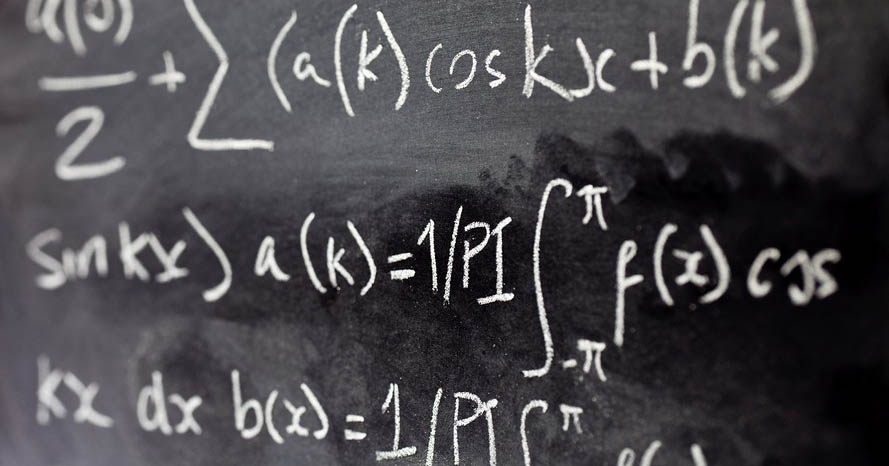 a(0)/2 + ∑ (a(k) cos kx + b(k)
sin kx) a(k) = 1/PI ∫ π -π f(x) cos
kx dx b(x) = 1/PI ∫ π f(